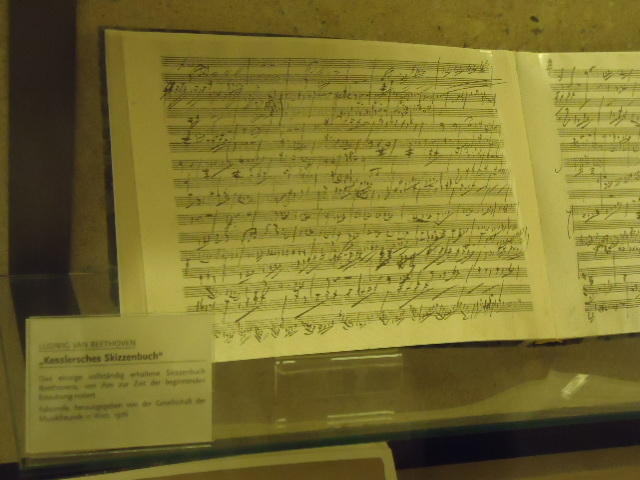 LUDWIG VAN BEETHOVEN
„Kesslersches Skizzenbuch“
Das einzige vollständig erhaltene Skizzenbuch
Beethovens, von ihm zur Zeit der beginnenden
Ertaubung notiert
Faksimile, herausgegeben von der Gesellschaft der
Musikfreunde in Wien, 1976